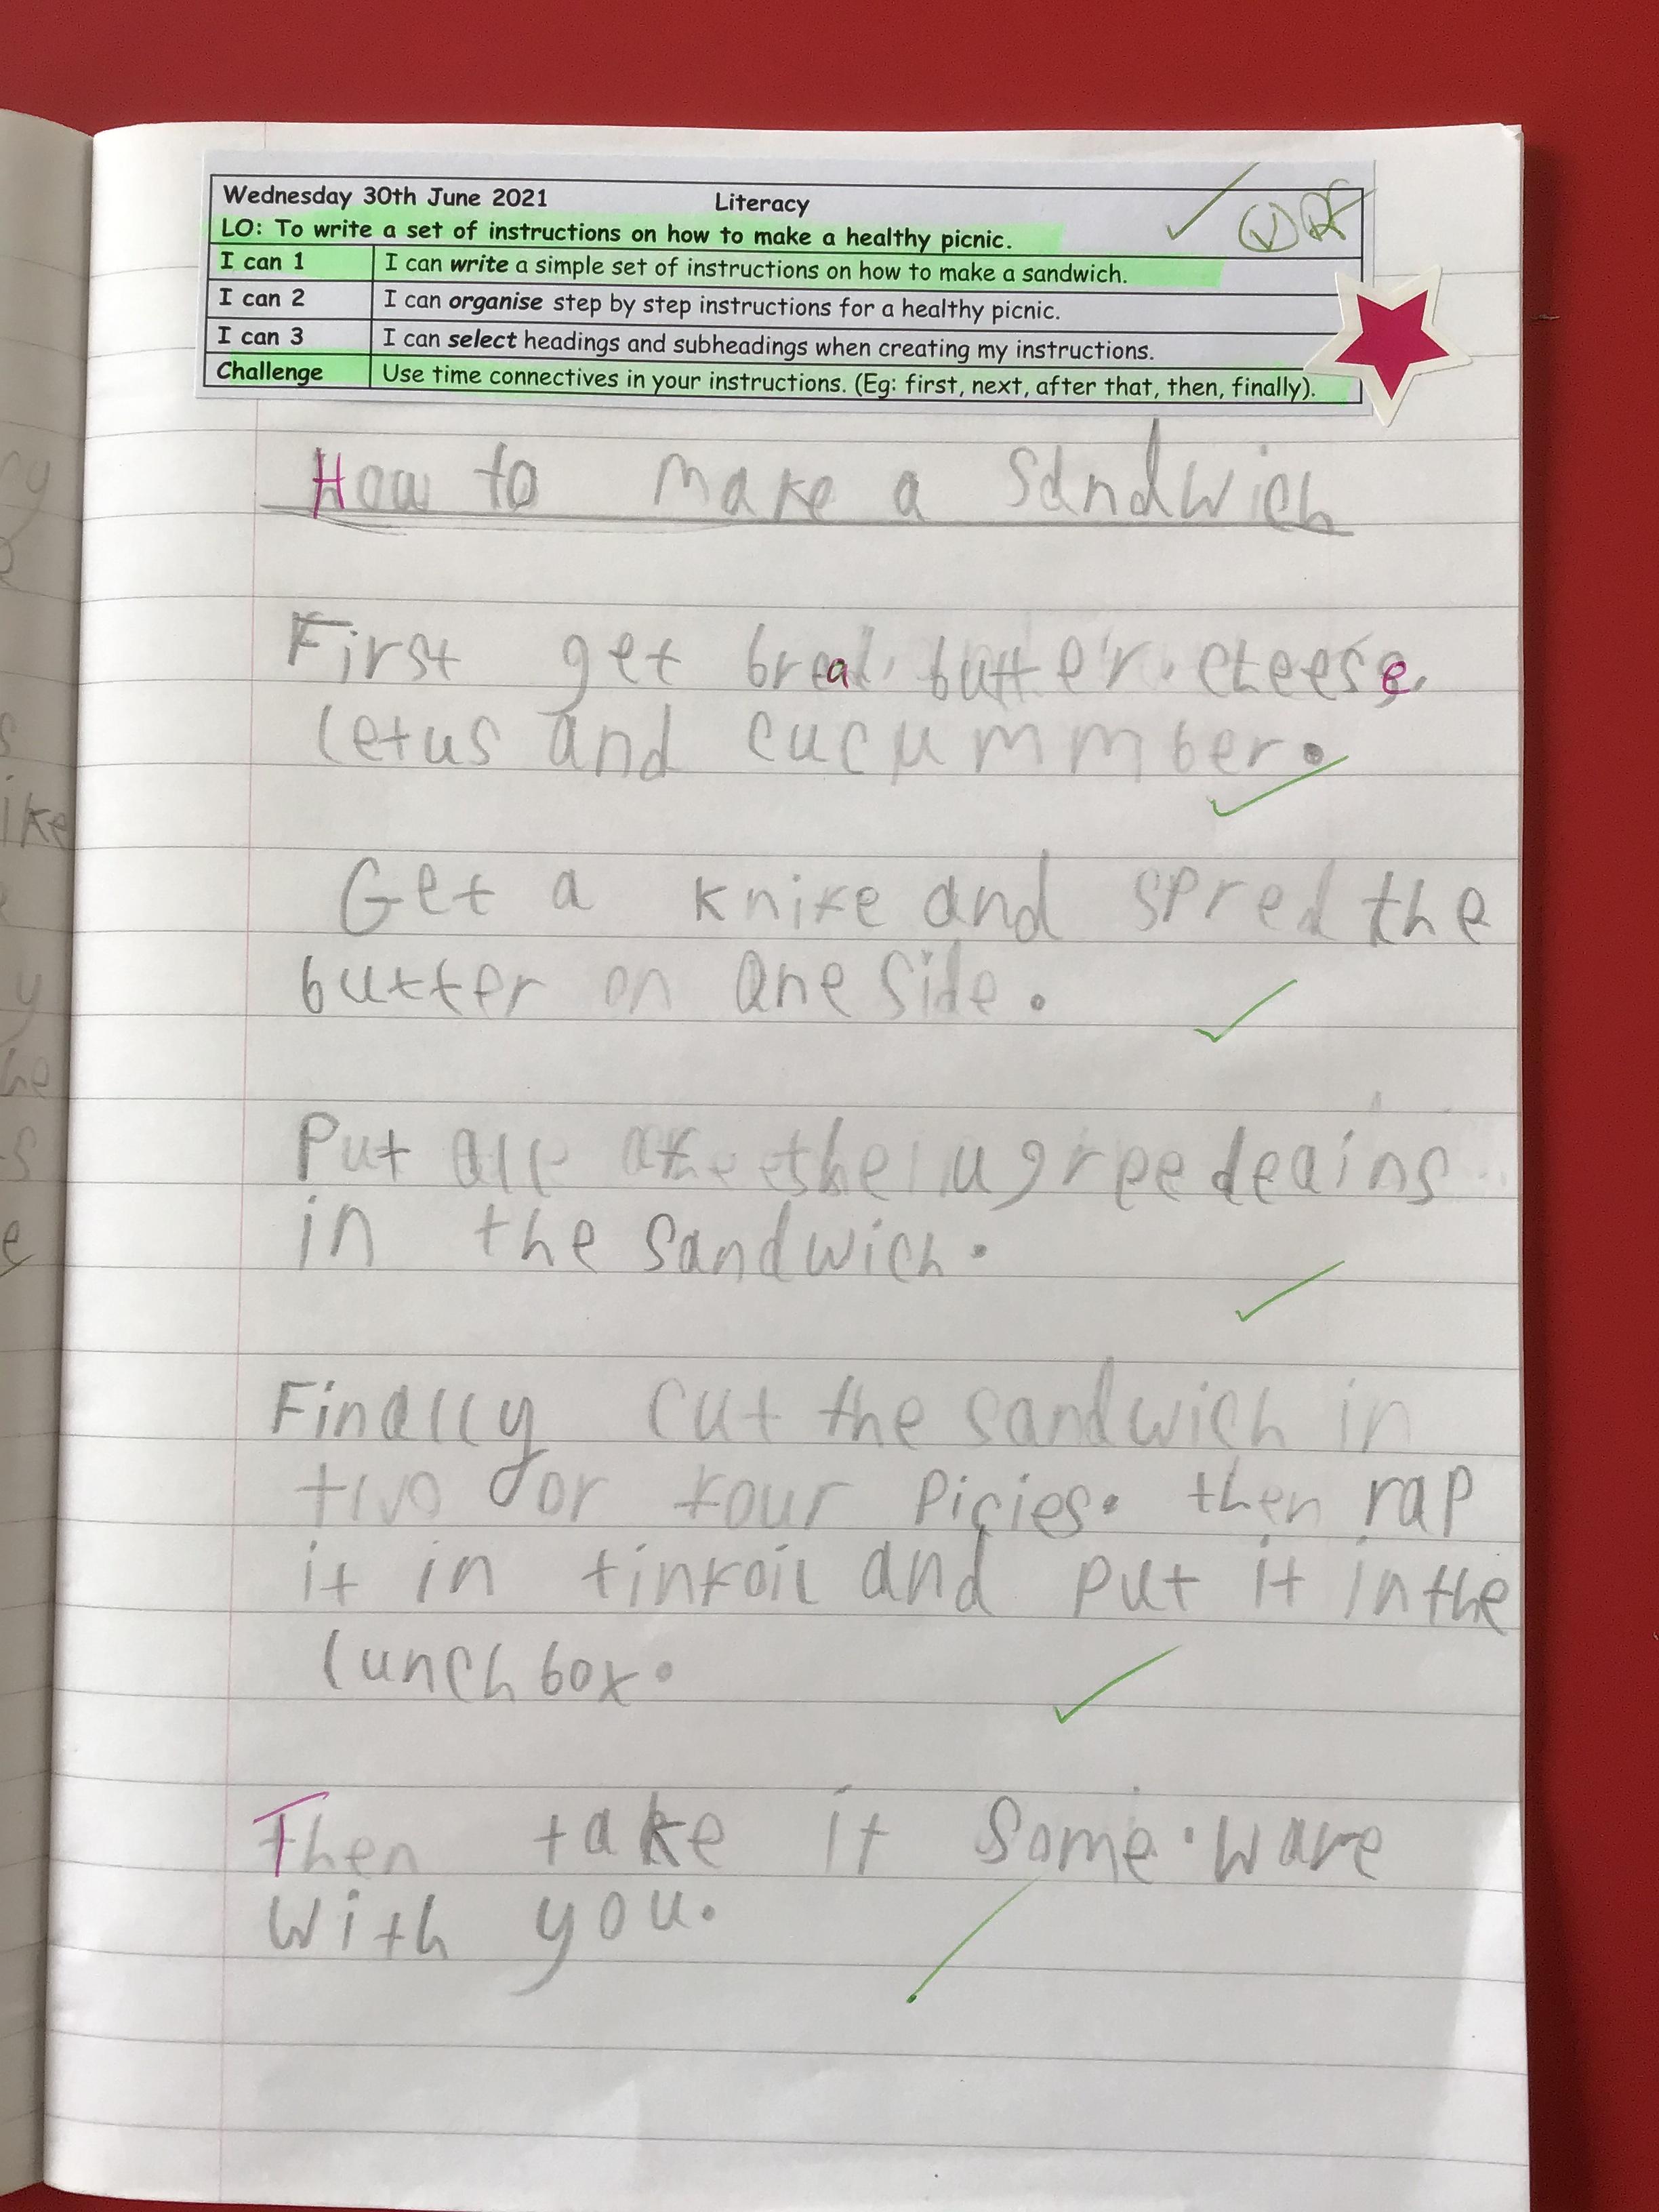 Wednesday 30th June 2021 Literacy
LO: To write a set of instructions on how to make a healthy picnic.
I can 1 I can write a simple set of instructions on how to make a sandwich.
I can 2 I can organise step by step instructions for a healthy picnic.
I can 3 I can select headings and subheadings when creating my instructions.
Challenge Use time connectives in your instructions. (Eg: first, next, after that, then, finally).
How to make a Sandwich
First get bread, butter, cheese,
letus and cucummber.
Get a knife and spred the
butter on one side.
Put all the
in the sandwich.
Finally cut the sandwich in
two or four picies. then rap
it in tinfoil and put it in the
lunch box.
Then take it some ware
with you.
ike